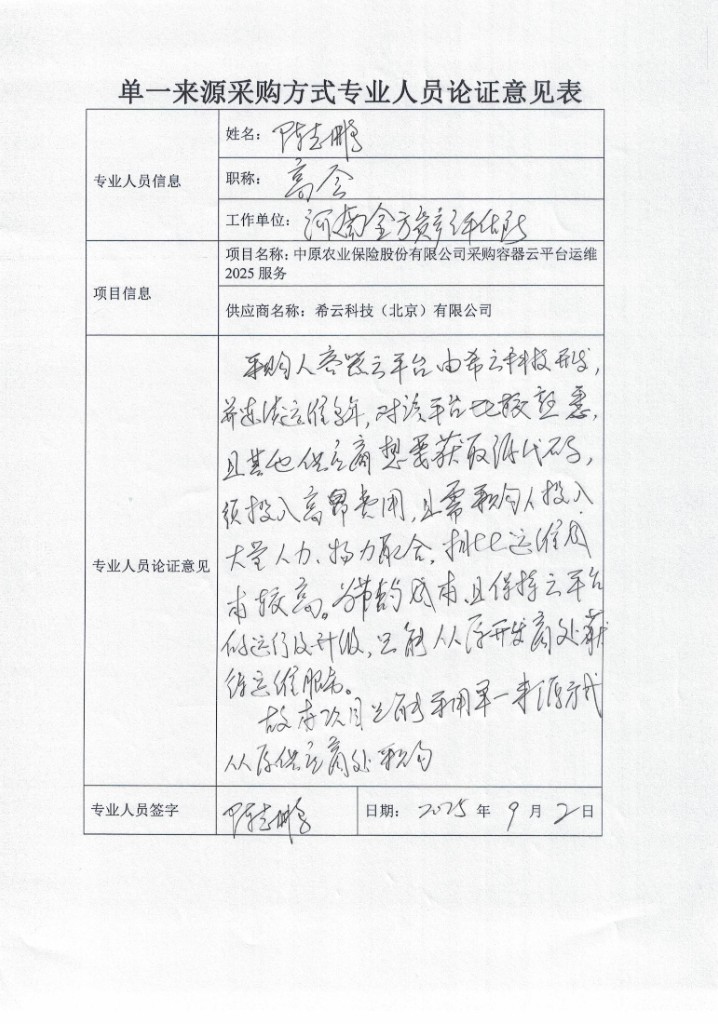 单一来源采购方式专业人员论证意见表
专业人员信息
姓名：陈志鹏
职称：高会
工作单位：河南金方资产评估所
项目信息
项目名称：中原农业保险股份有限公司采购容器云平台运维
2025 服务
供应商名称：希云科技（北京）有限公司
专业人员论证意见
采购人容器云平台由希云科技开发，
并连续运维多年，对该平台比较熟悉，
且其他供应商想要获取源代码，
须投入高昂费用，且需采购人投入
大量人力、物力配合，相比运维成
本较高。为节约成本，且保持云平台
的运行及升级，只能从原开发商处获
得运维服务。
故本次项目只能采用单一来源方式
从原供应商处采购
专业人员签字
陈志鹏
日期：2025 年 9 月 2 日